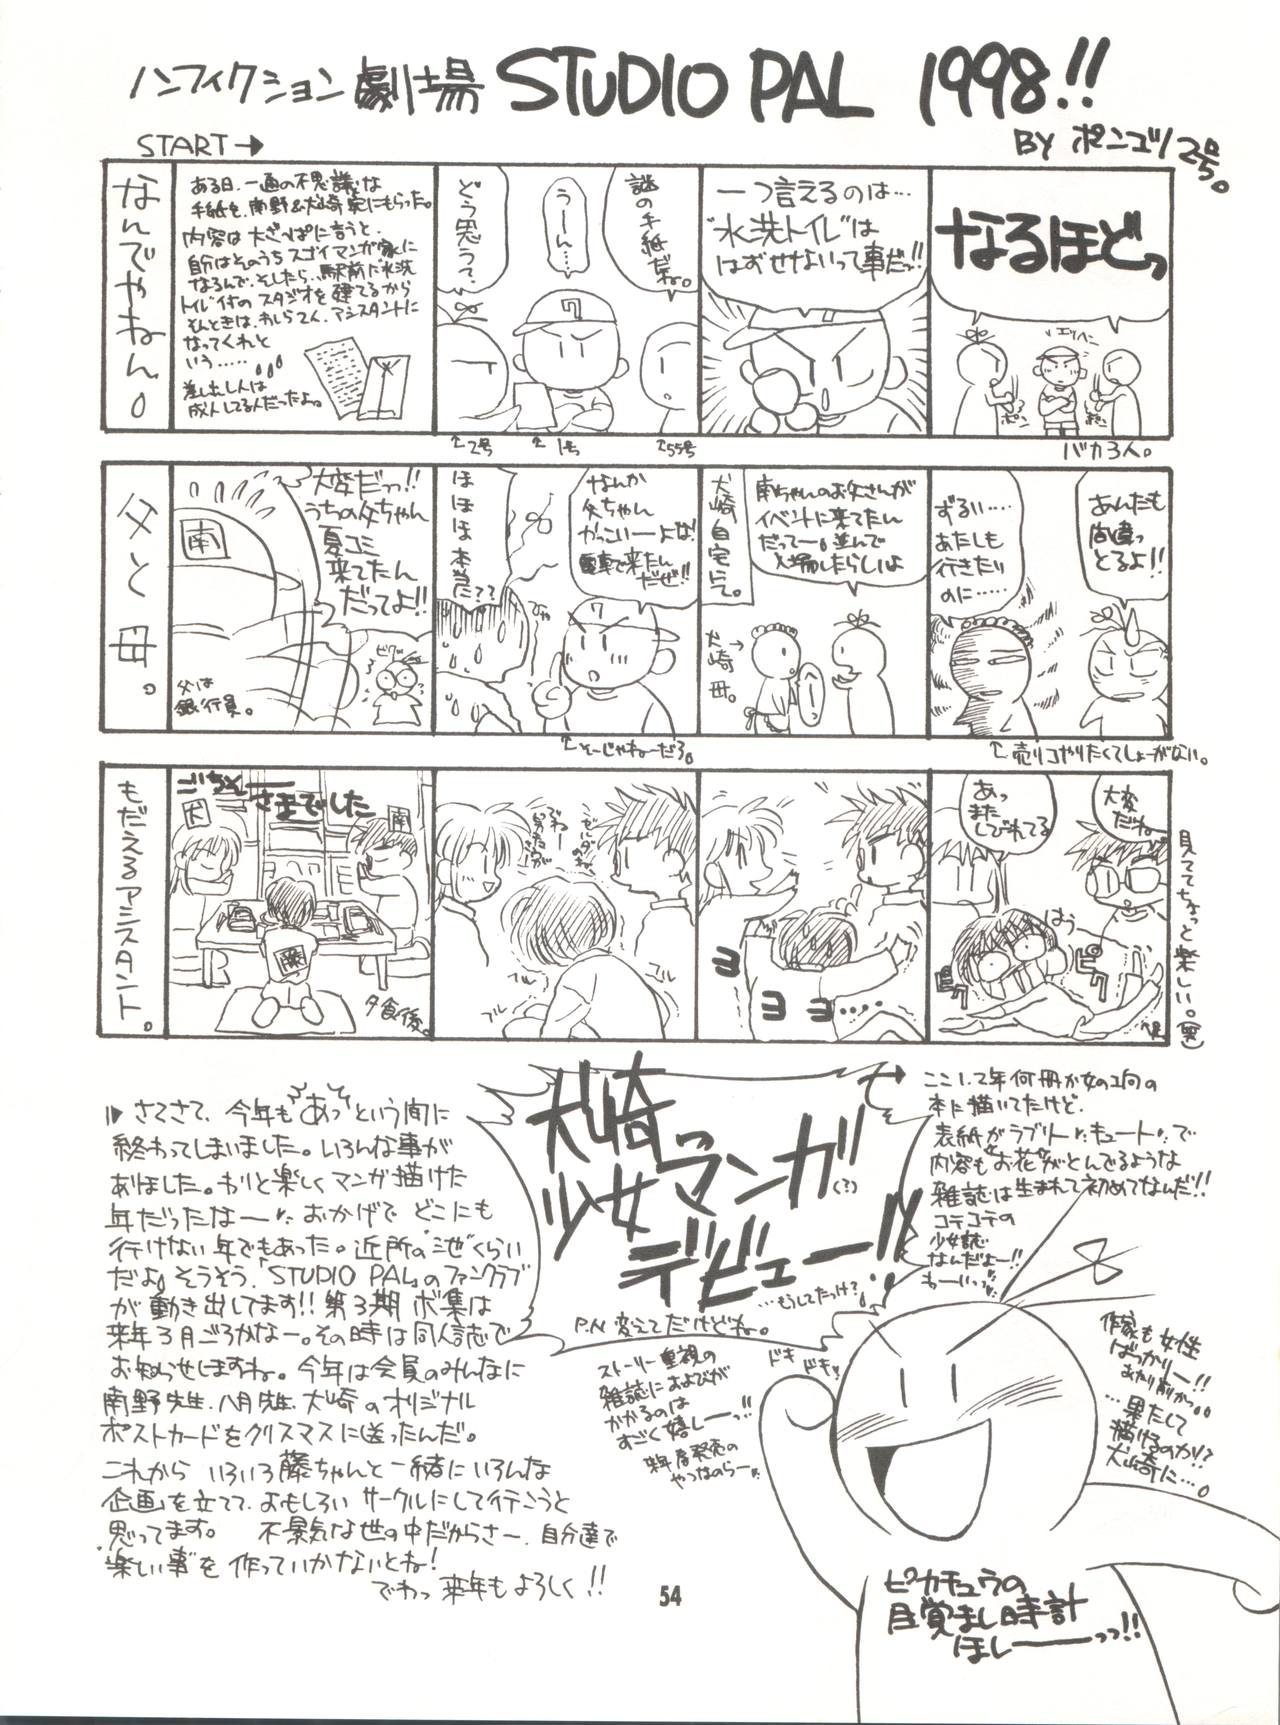 ノンフィクション劇場 STUDIO PAL 1998!!
BY ポンコツ2号。
START→
なんでやねん。
ある日、一通の不思議な
手紙を、南野&犬崎家にもらった。
内容は大ざっぱに言うと、
自分はそのうちスゴイマンガ家に
なるんで、そしたら、駅前に水洗
トイレ付のスタジオを建てるから
そんときは、わしらてく、アシスタントに
なってくれと
いう……
差し出し人は
成人してる人だったよ。
謎の手紙だね。
うーん…
どう思うって
←2号
←1号
←55号
一つ言えるのは…
"水洗トイレ"は
はずせないって事だっ!!
なるほどっ
エッヘン
ポン
ポン
バカ3人。
父と母。
南
大変だっ!!
うちの父ちゃん
夏コミ
来てたん
だってよ!!
ビクッ
父は
銀行員。
なんか
父ちゃん
かっこいーよな!
電車で来たん
だぜ!!
ほほほ本当だ??
←そーじゃねーだろ。
南ちゃんのお父さんが
イベントに来てたん
だってー。並んで
入場したらしいよ
犬崎自宅にて。
犬崎母。→
あんたも
間違っ
とるよ!!
ずるい……
あたしも
行きたい
のに……
←売り子やりたくてしょーがない。
もだえるアシスタント。
ごちそーさまでした
犬
南
藤
夕食後。
ブル
ブル
ヨ
ヨ
ヨ…
大変だね
あっ
また
しびれてる
はう
ピク
ピク
見ててちょっと楽しい。(笑)
さてさて、今年も"あっ"という間に
終わってしまいました。いろんな事が
ありました。わりと楽しくマンガ描けた
年だったなー。おかげで どこにも
行けない年でもあった。近所の"池"くらい
だよ。そうそう、「STUDIO PAL」のファンクラブ
が動き出してます!! 第3期ボ集は
来年3月ごろかなー。その時は同人誌で
お知らせしますね。今年は会員のみんなに
南野先生、八月先生、犬崎のオリジナル
ポストカードをクリスマスに送ったんだ。
これから いろいろ藤ちゃんと一緒にいろんな
企画を立てて、おもしろい サークルにして行こうと
思ってます。 不景気な世の中だからさー、自分達で
"楽しい事"を作っていかないとね!
でわっ 来年もよろしく!!
犬崎
少女マンガ(?)
デビュー!!
…もうしてたっけ?
P.N 変えてだけどね。
→ここ1、2年何冊か女の子向の
本に描いてたけど、
表紙がラブリーキュートで
内容も"お花"がとんでるような
雑誌は生まれて初めてなんだ!!
コテコテの
少女誌
なんだよー!!
わーいっっ
ドキ
ドキッ
ストーリー重視の
雑誌におよびが
かかるのは
すごく嬉しーっ!!
来年春発売の
やつなのらー
作家も女性
ばっかりー!!
あたり前かっ。。
…果たして
描けるのか!?
犬崎に…。
ピカチュウの
目覚まし時計
ほしーーーっっ!!
54